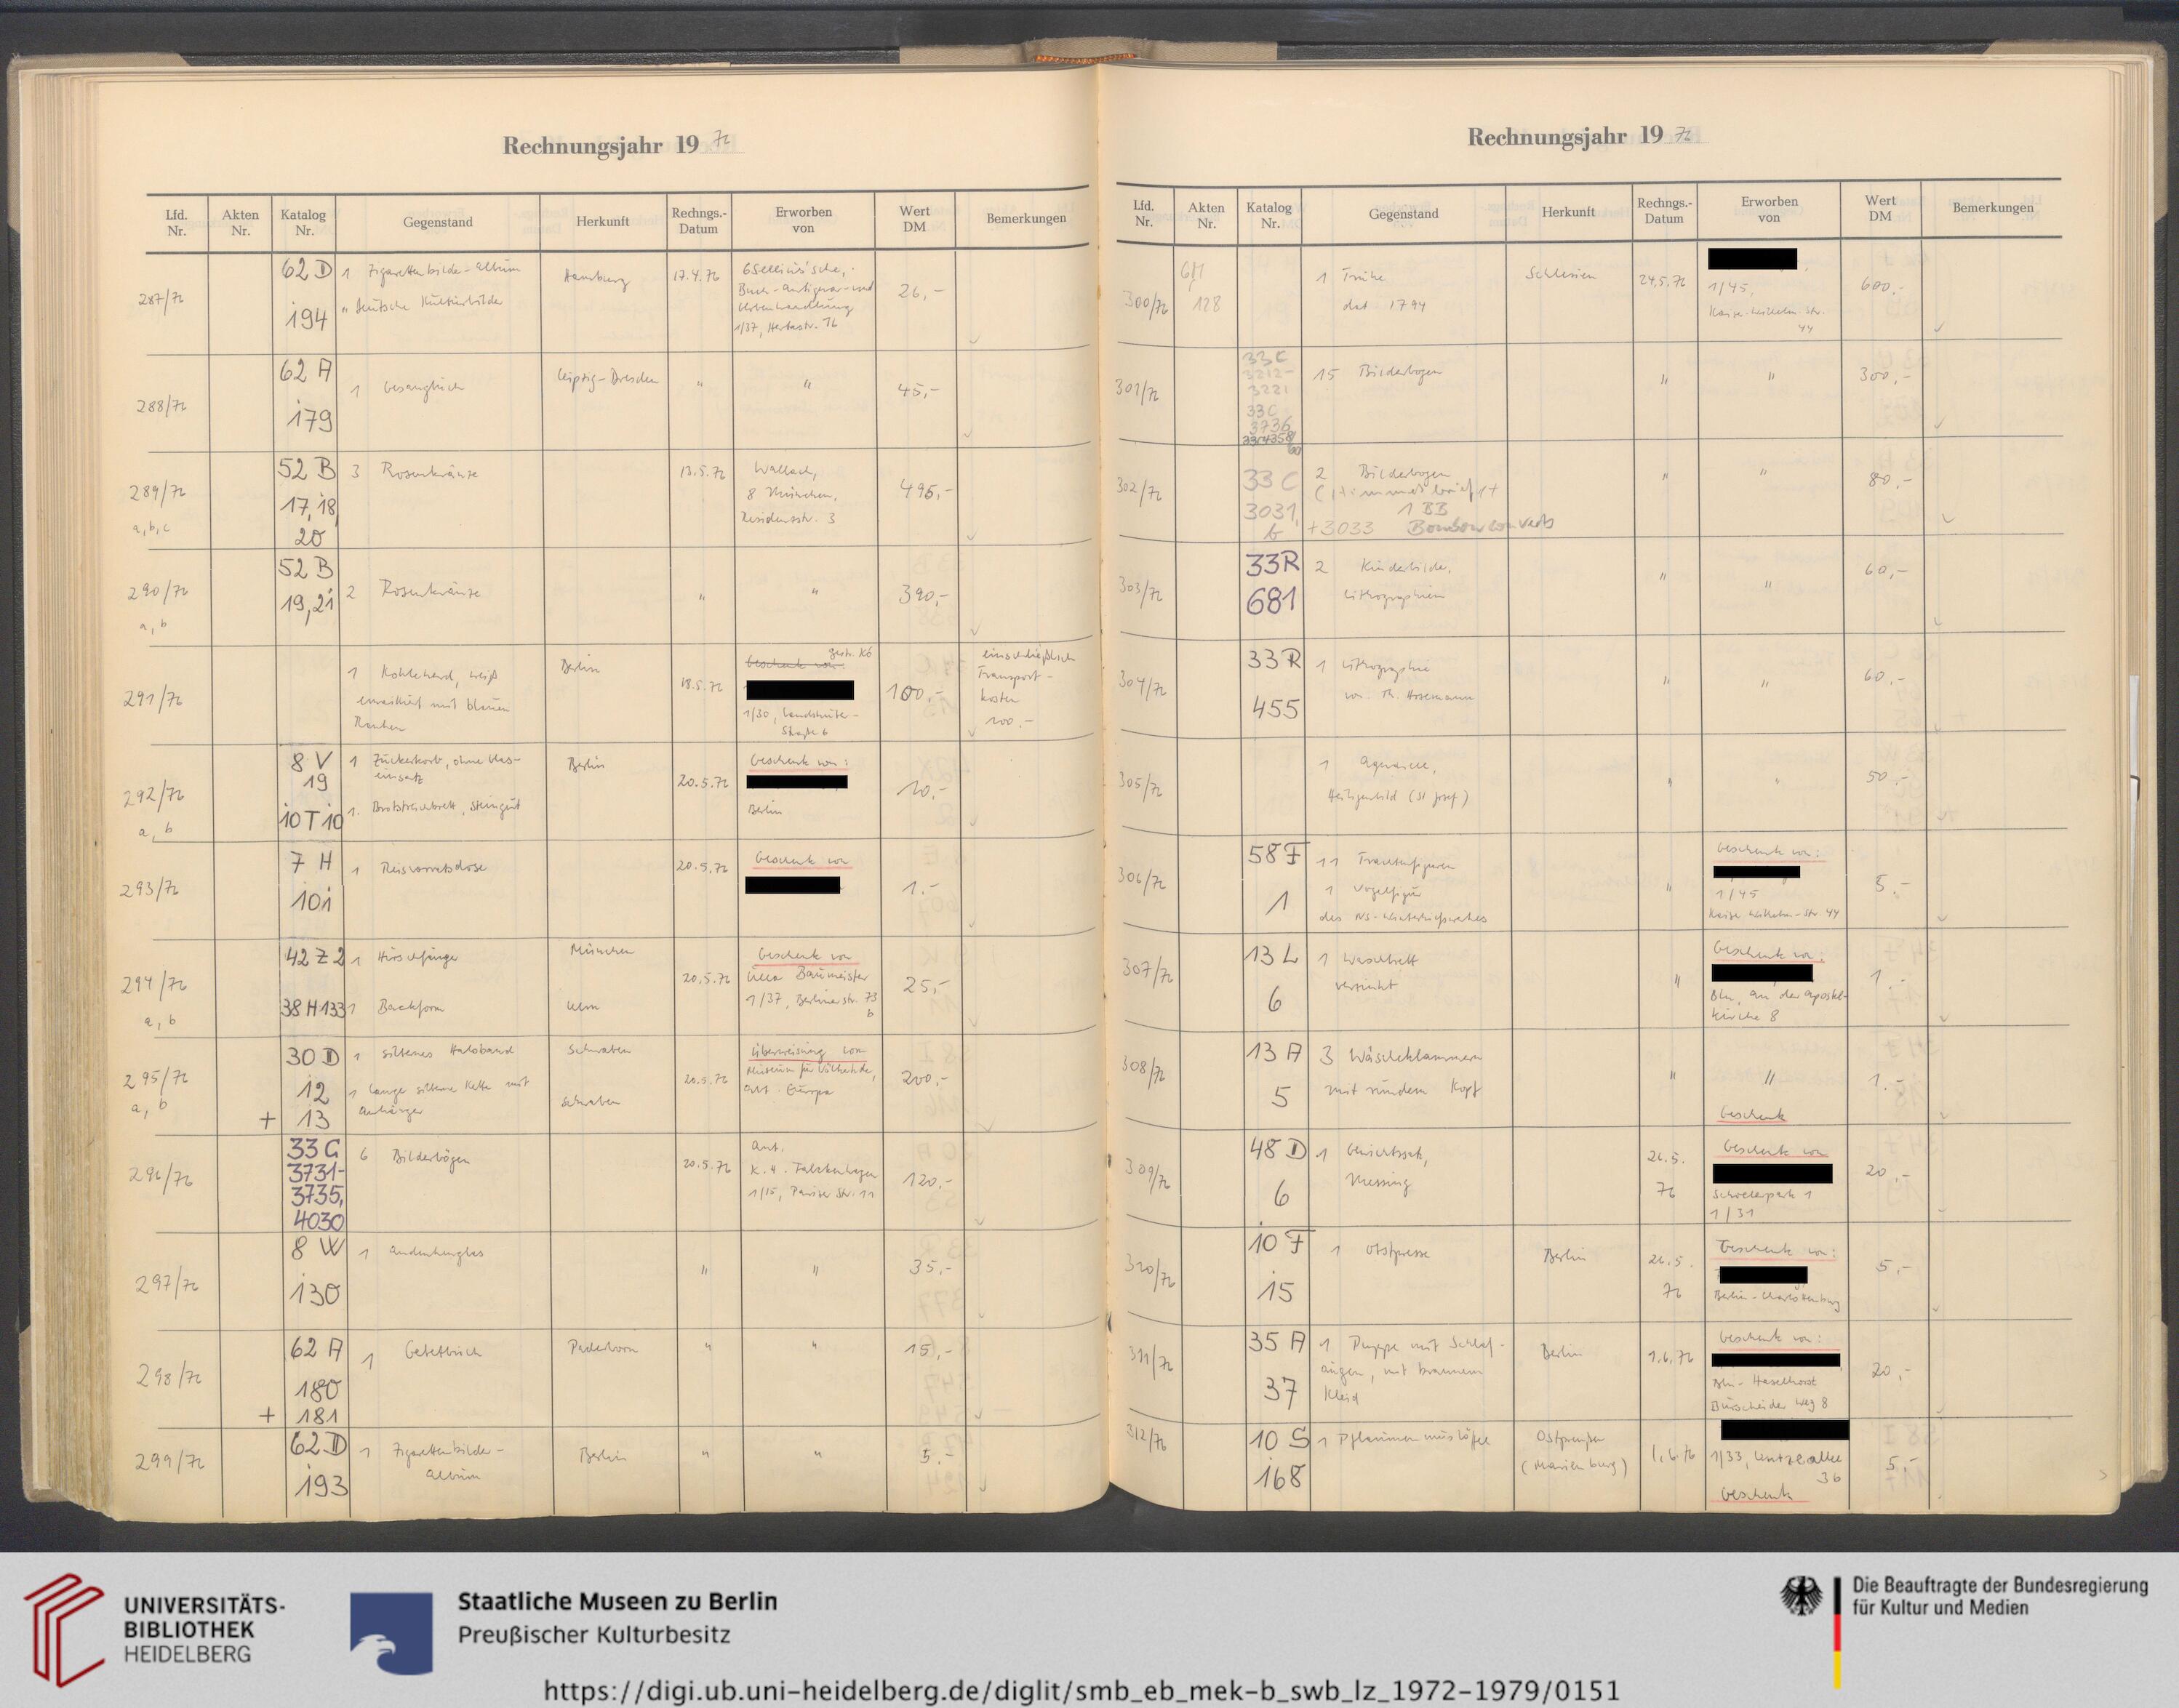 Rechnungsjahr 19 76
Lfd. Nr.
Akten Nr.
Katalog Nr.
Gegenstand
Herkunft
Rechngs.-Datum
Erworben von
Wert DM
Bemerkungen
287/76
62 D
194
1 Zigarettenbilder-Album
"Deutsche Kulturbilder
Hamburg
17.4.76
Buch-Antiquar- und
1/37, Hertastr. 16
26,-
288/76
62 A
179
1 Gesangbuch
Leipzig-Dresden
"
"
45,-
289/76
a, b, c
52 B
17, 18,
20
3 Rosenkränze
13.5.76
Wallach,
8 München,
Residenzstr. 3
495,-
290/76
a, b
52 B
19, 21
2 Rosenkränze
"
"
390,-
291/76
1 Kohleherd, weiß
emailliert mit blauen
Ranken
Berlin
18.5.76
Geschenk von
1/30, Landshuter-
Straße 6
100,-
einschließlich
Transport-
kosten
100.-
292/76
a, b
8 V
19
10 T 10
1 Zuckerkorb, ohne Glas-
einsatz
1 Brotstreichbrett, Steingut
Berlin
20.5.76
Geschenk von:
Berlin
10,-
293/76
7 H
101
1 Reisvorratsdose
20.5.76
Geschenk von
1.-
294/76
a, b
42 Z 2
38 H 133
1 Hirschfänger
1 Backform
München
Ulm
20.5.76
Geschenk von
Ulla Baumeister
1/37, Berliner str. 73
b
25,-
295/76
a, b
30 D
12
+ 13
1 silbernes Halsband
1 lange silberne Kette mit
Anhänger
Schwaben
Schwaben
20.5.76
Überweisung vom
Museum für Völkerkunde,
Abt. Europa
200,-
296/76
33 C
3731-
3735,
4030
6 Bilderbögen
20.5.76
Ant.
K. H. Falckenhagen
1/15, Pariser Str. 11
120,-
297/76
8 W
130
1 Andenkenglas
"
"
35,-
298/76
62 A
180
+ 181
1 Gebetbuch
Paderborn
"
"
15,-
299/76
62 D
193
1 Zigarettenbilder-
Album
Berlin
"
"
5.-
Rechnungsjahr 19 76
Lfd. Nr.
Akten Nr.
Katalog Nr.
Gegenstand
Herkunft
Rechngs.-Datum
Erworben von
Wert DM
Bemerkungen
300/76
128
1 Truhe
dat 1794
Schlesien
24.5.76
1/45,
Kaiser-Wilhelm-Str.
44
600.-
301/76
33 C
3212-
3221
33 C
3736
15 Bilderbogen
"
"
300,-
302/76
33 C
3031,
+3033
2 Bilderbogen
1 BB
"
"
80,-
303/76
33 R
681
2 Kinderbilder,
Lithographien
"
"
60,-
304/76
33 R
455
1 Lithographie
von Th. Hosemann
"
"
60.-
305/76
1 Aquarell,
Heiligenbild (St Josef)
"
"
50.-
306/76
58 F
1
11 Trachtenfiguren
1 Vogelfigur
des NS-Winterhilfswerkes
"
Geschenk von:
1/45
Kaiser-Wilhelm-Str. 44
5.-
307/76
13 L
6
1 Waschbrett
verzinkt
"
Geschenk von:
Bln, An der Apostel-
kirche 8
1.-
308/76
13 A
5
3 Wäscheklammern
mit rundem Kopf
"
"
Geschenk
1.-
309/76
48 D
6
1 Gewichtssatz,
Messing
26.5.
76
Geschenk von
1/31
20,-
310/76
10 F
15
1 Obstpresse
Berlin
26.5.
76
Geschenk von:
Berlin-Charlottenburg
5,-
311/76
35 A
37
1 Puppe mit Schlaf-
augen, mit braunem
Kleid
Berlin
1.6.76
Geschenk von:
Bln-Haselhorst
Burscheider Weg 8
20,-
312/76
10 S
168
1 Pflaumenmuslöffel
Ostpreußen
(Marienburg)
1.6.76
1/33, Lentzeallee
36
Geschenk
5,-
UNIVERSITÄTS-
BIBLIOTHEK
HEIDELBERG
Staatliche Museen zu Berlin
Preußischer Kulturbesitz
Die Beauftragte der Bundesregierung
für Kultur und Medien
https://digi.ub.uni-heidelberg.de/diglit/smb_eb_mek-b_swb_lz_1972-1979/0151